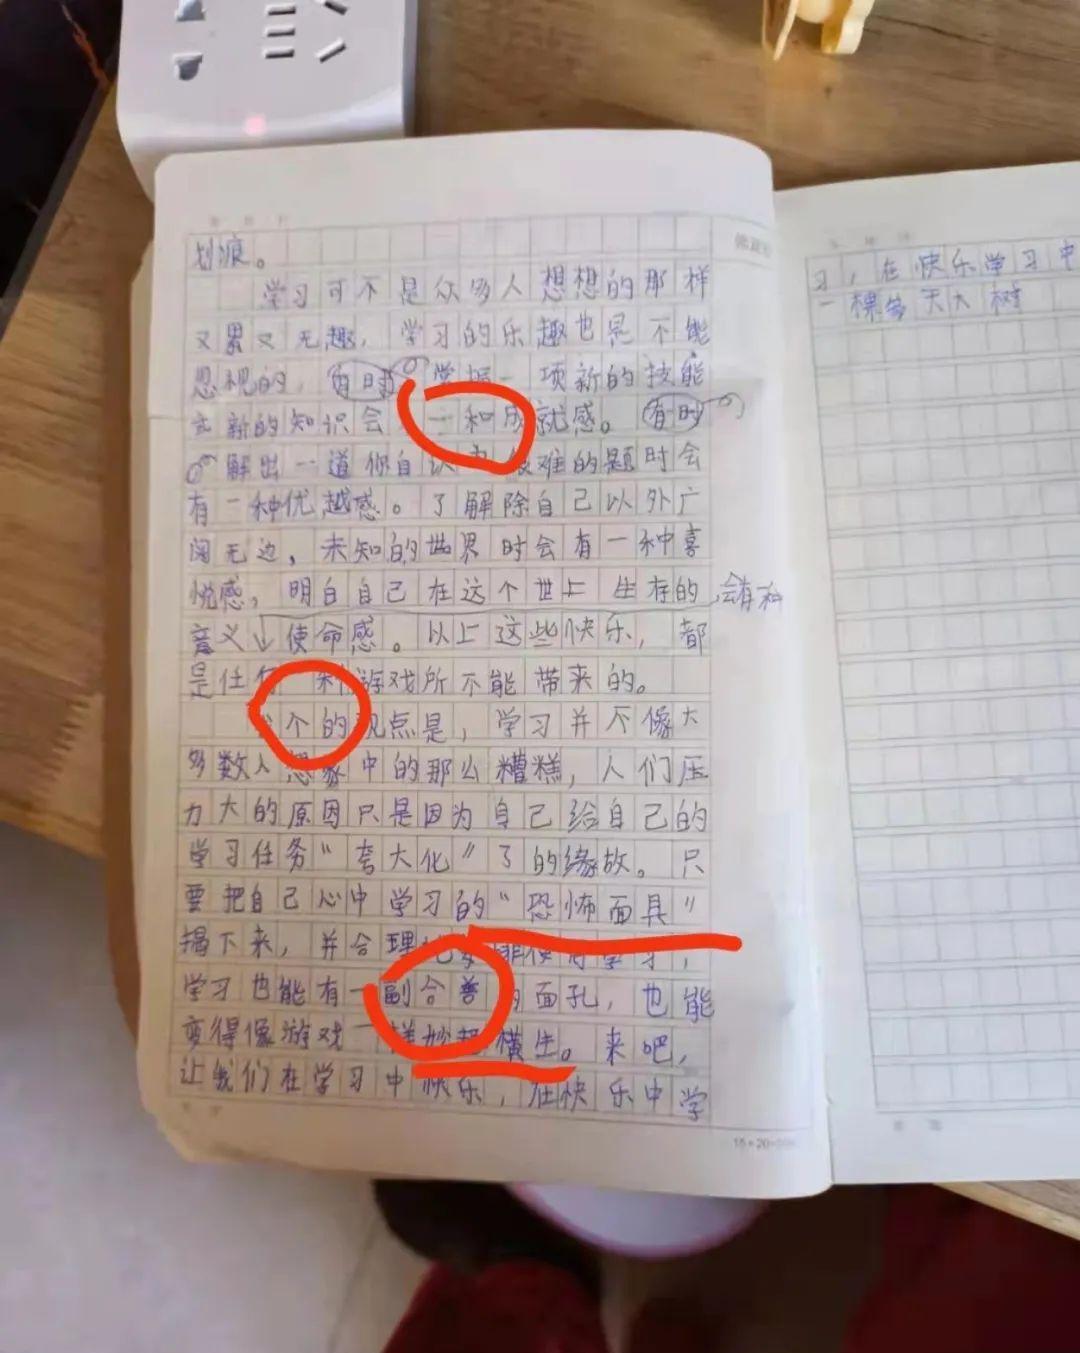 划痕。
学习可不是众多人想想的那样
又累又无趣，学习的乐趣也是不能
忽视的，有时掌握一项新的技能
或新的知识会一和成就感。有时
解出一道你自认为很难的题时会
有一种优越感。了解除自己以外广
阔无边，未知的世界时会有一种喜
悦感，明白自己在这个世上生存的
会有种
意义使命感。以上这些快乐，都
是任何一种游戏所不能带来的。
个的观点是，学习并不像大
多数人想象中的那么糟糕，人们压
力大的原因只是因为自己给自己的
学习任务“夸大化”了的缘故。只
要把自己心中学习的“恐怖面具”
揭下来，并合理学习，
学习也能有一副合善的面孔，也能
变得像游戏一样妙趣横生。来吧，
让我们在学习中快乐，在快乐中学
习，在快乐学习中
一棵参天大树